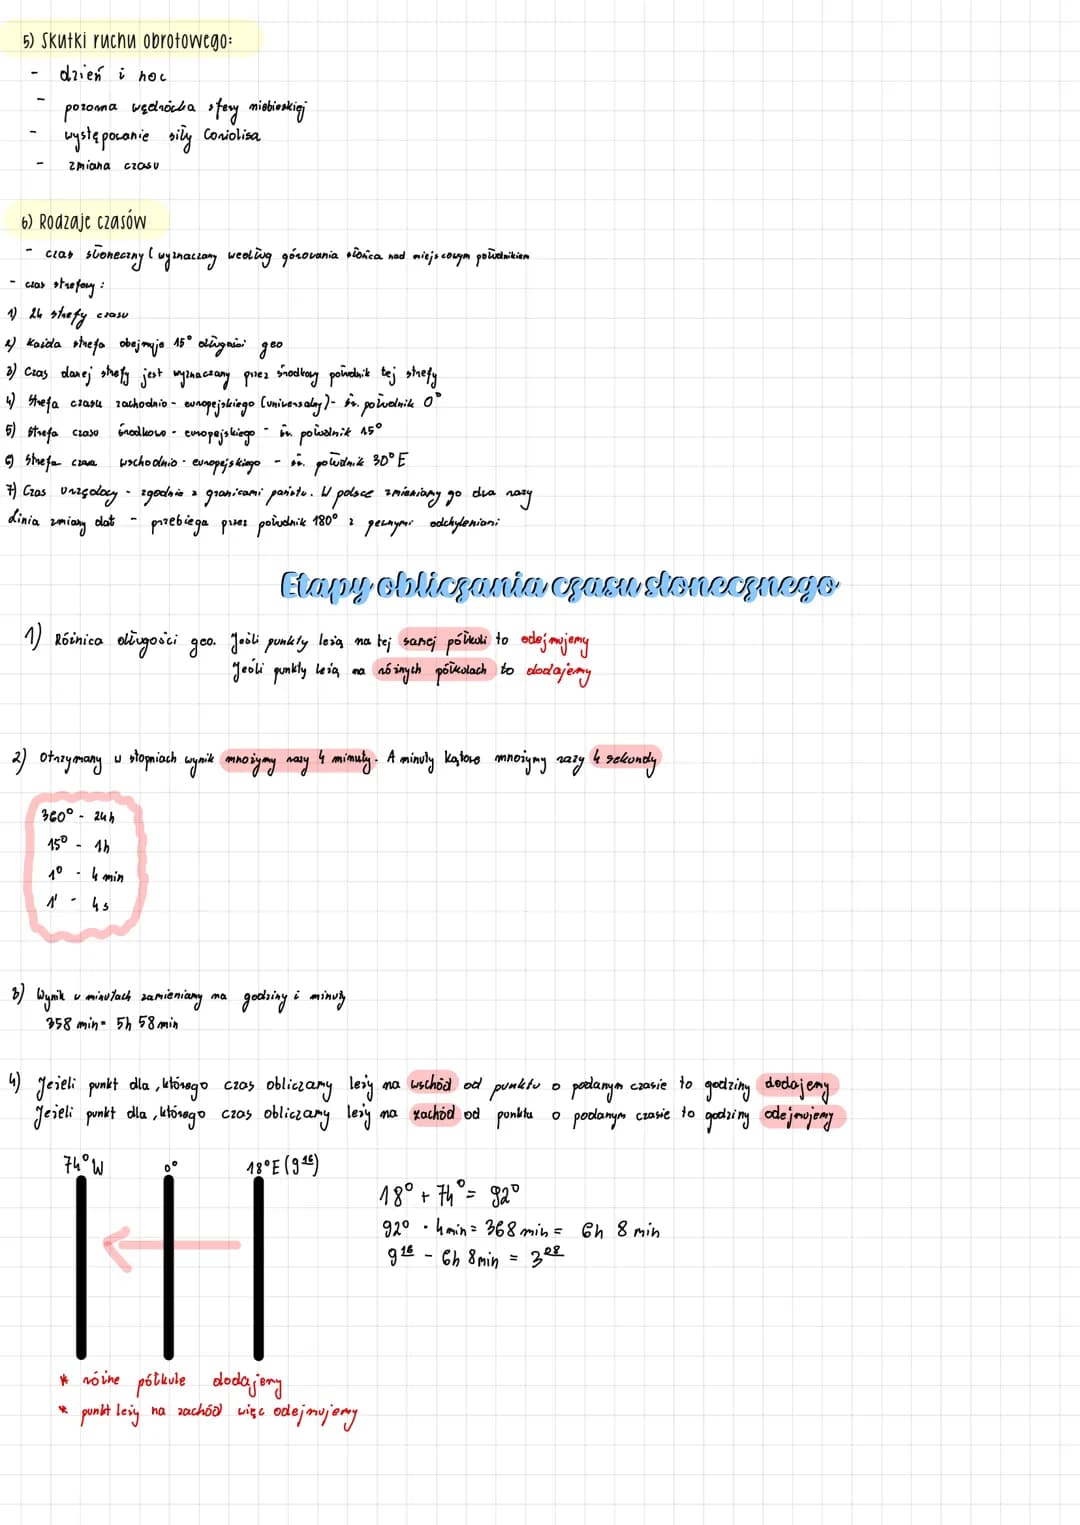 5) Skutki ruchu obrotowego:
- dzień i noc
- pozorna wędrówka sfery niebieskiej
- występowanie siły Coriolisa
- zmiana czasu
6) Rodzaje czasów
- czas słoneczny (wyznaczany według górowania słońca nad miejscowym południkiem
- czas strefowy:
1) 24 strefy czasu
2) Każda strefa obejmuje 15° długości geo
3) Czas danej strefy jest wyznaczany przez środkowy południk tej strefy
4) Strefa czasu zachodnio - europejskiego (uniwersalny) - śr. południk 0°
5) Strefa czasu środkowo - europejskiego - śr. południk 15°
6) Strefa czasu wschodnio - europejskiego - śr. południk 30° E
7) Czas urzędowy - zgodnie z granicami państw. W polsce zmieniamy go dwa razy
Linia zmiany dat - przebiega przez południk 180° z pewnymi odchyleniami
Etapy obliczania czasu słonecznego
1) Różnica długości geo. Jeśli punkty leżą na tej samej półkuli to odejmujemy
Jeśli punkty leżą na różnych półkulach to dodajemy
2) Otrzymany w stopniach wynik mnożymy razy 4 minuty. A minuty kątowe mnożymy razy 4 sekundy
360° - 24h
15° - 1h
1° - 4 min
1' - 4s
3) Wynik w minutach zamieniamy na godziny i minuty
358 min = 5h 58 min
4) Jeżeli punkt dla, którego czas obliczamy leży na wschód od punktu o podanym czasie to godziny dodajemy
Jeżeli punkt dla, którego czas obliczamy leży na zachód od punktu o podanym czasie to godziny odejmujemy
74° W 0° 18° E (9¹⁶)
18° + 74° = 92°
92° · 4min = 368 min = 6h 8 min
9¹⁶ - 6h 8min = 3⁰⁸
* różne półkule dodajemy
* punkt leży na zachód więc odejmujemy